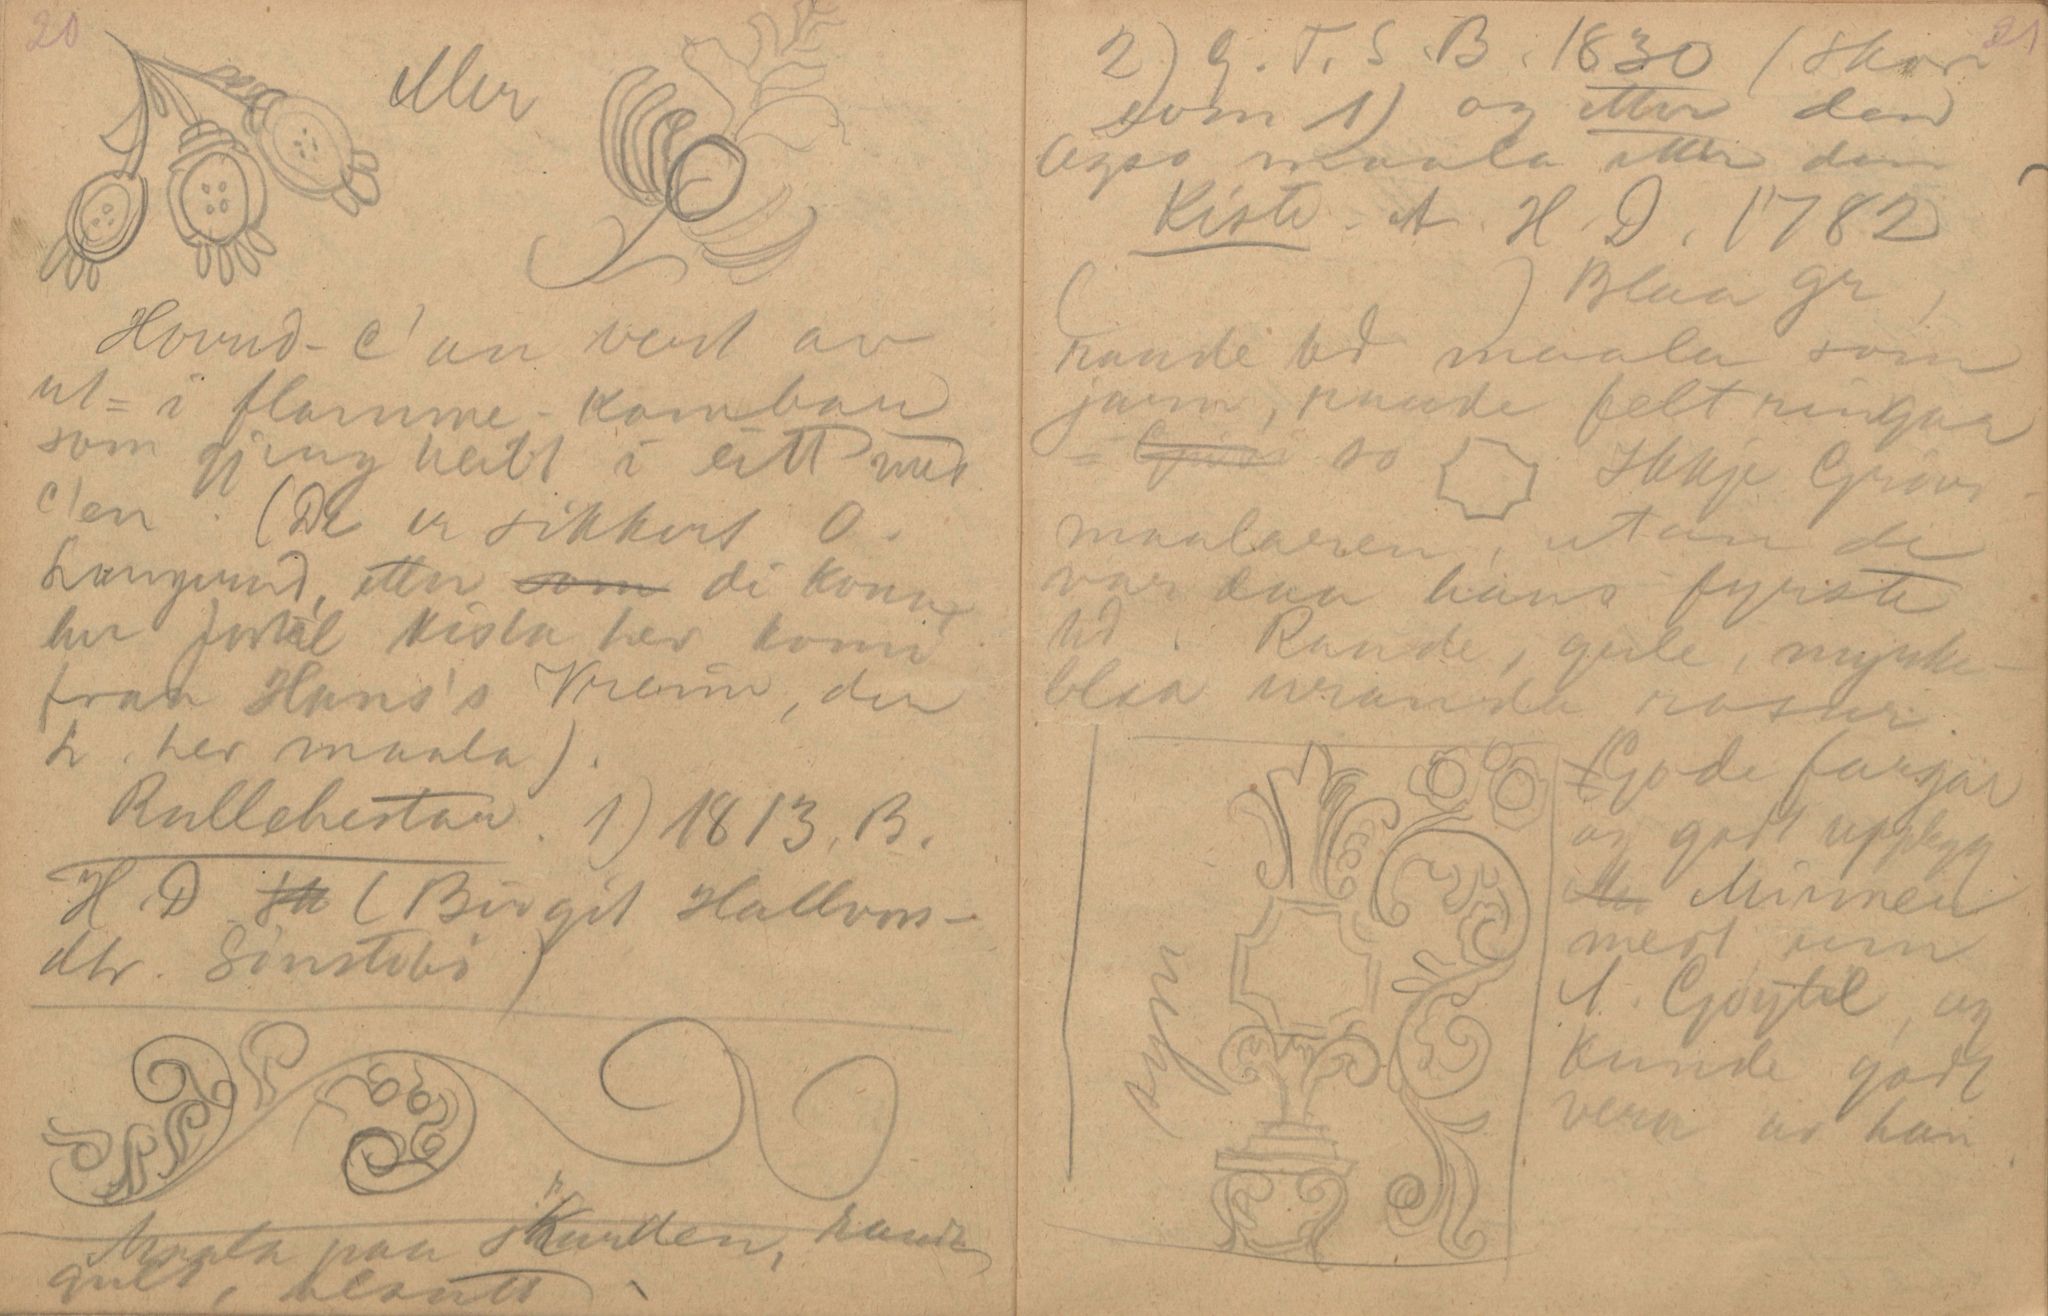 20
eller
Hovud-C'an vert av
ut = i flamme-kamban
som gjeng heilt i eitt med
C'en. (De er sikkert O.
Langerud, etter som di kona
her fortel kista her komi
fraa Hans's Vreim, der
L. her maala).
Rullekistar. 1) 1813. B.
H. D. (Birgit Hallvors-
dtr. Sönstebö)
Maala paa skurden, raudt
gult, blaatt
21
2) G. T. S. B. 1830 (Skori
som 1) og etter den
Ogso maala etter den
Kiste A. H. D. 1782
( ) Blaa gr,
raude bd maala som
jarn, raude felt ringaa
= so Ikkje Gröv-
maalaren, utan de
var daa hans fyrste
tid. Raude, gule, myrke-
blaa uranda rosur.
Gode fargar
og godt upplegg
Minner
mest um
A. Göytil, og
kunde godt
vera av han
sym